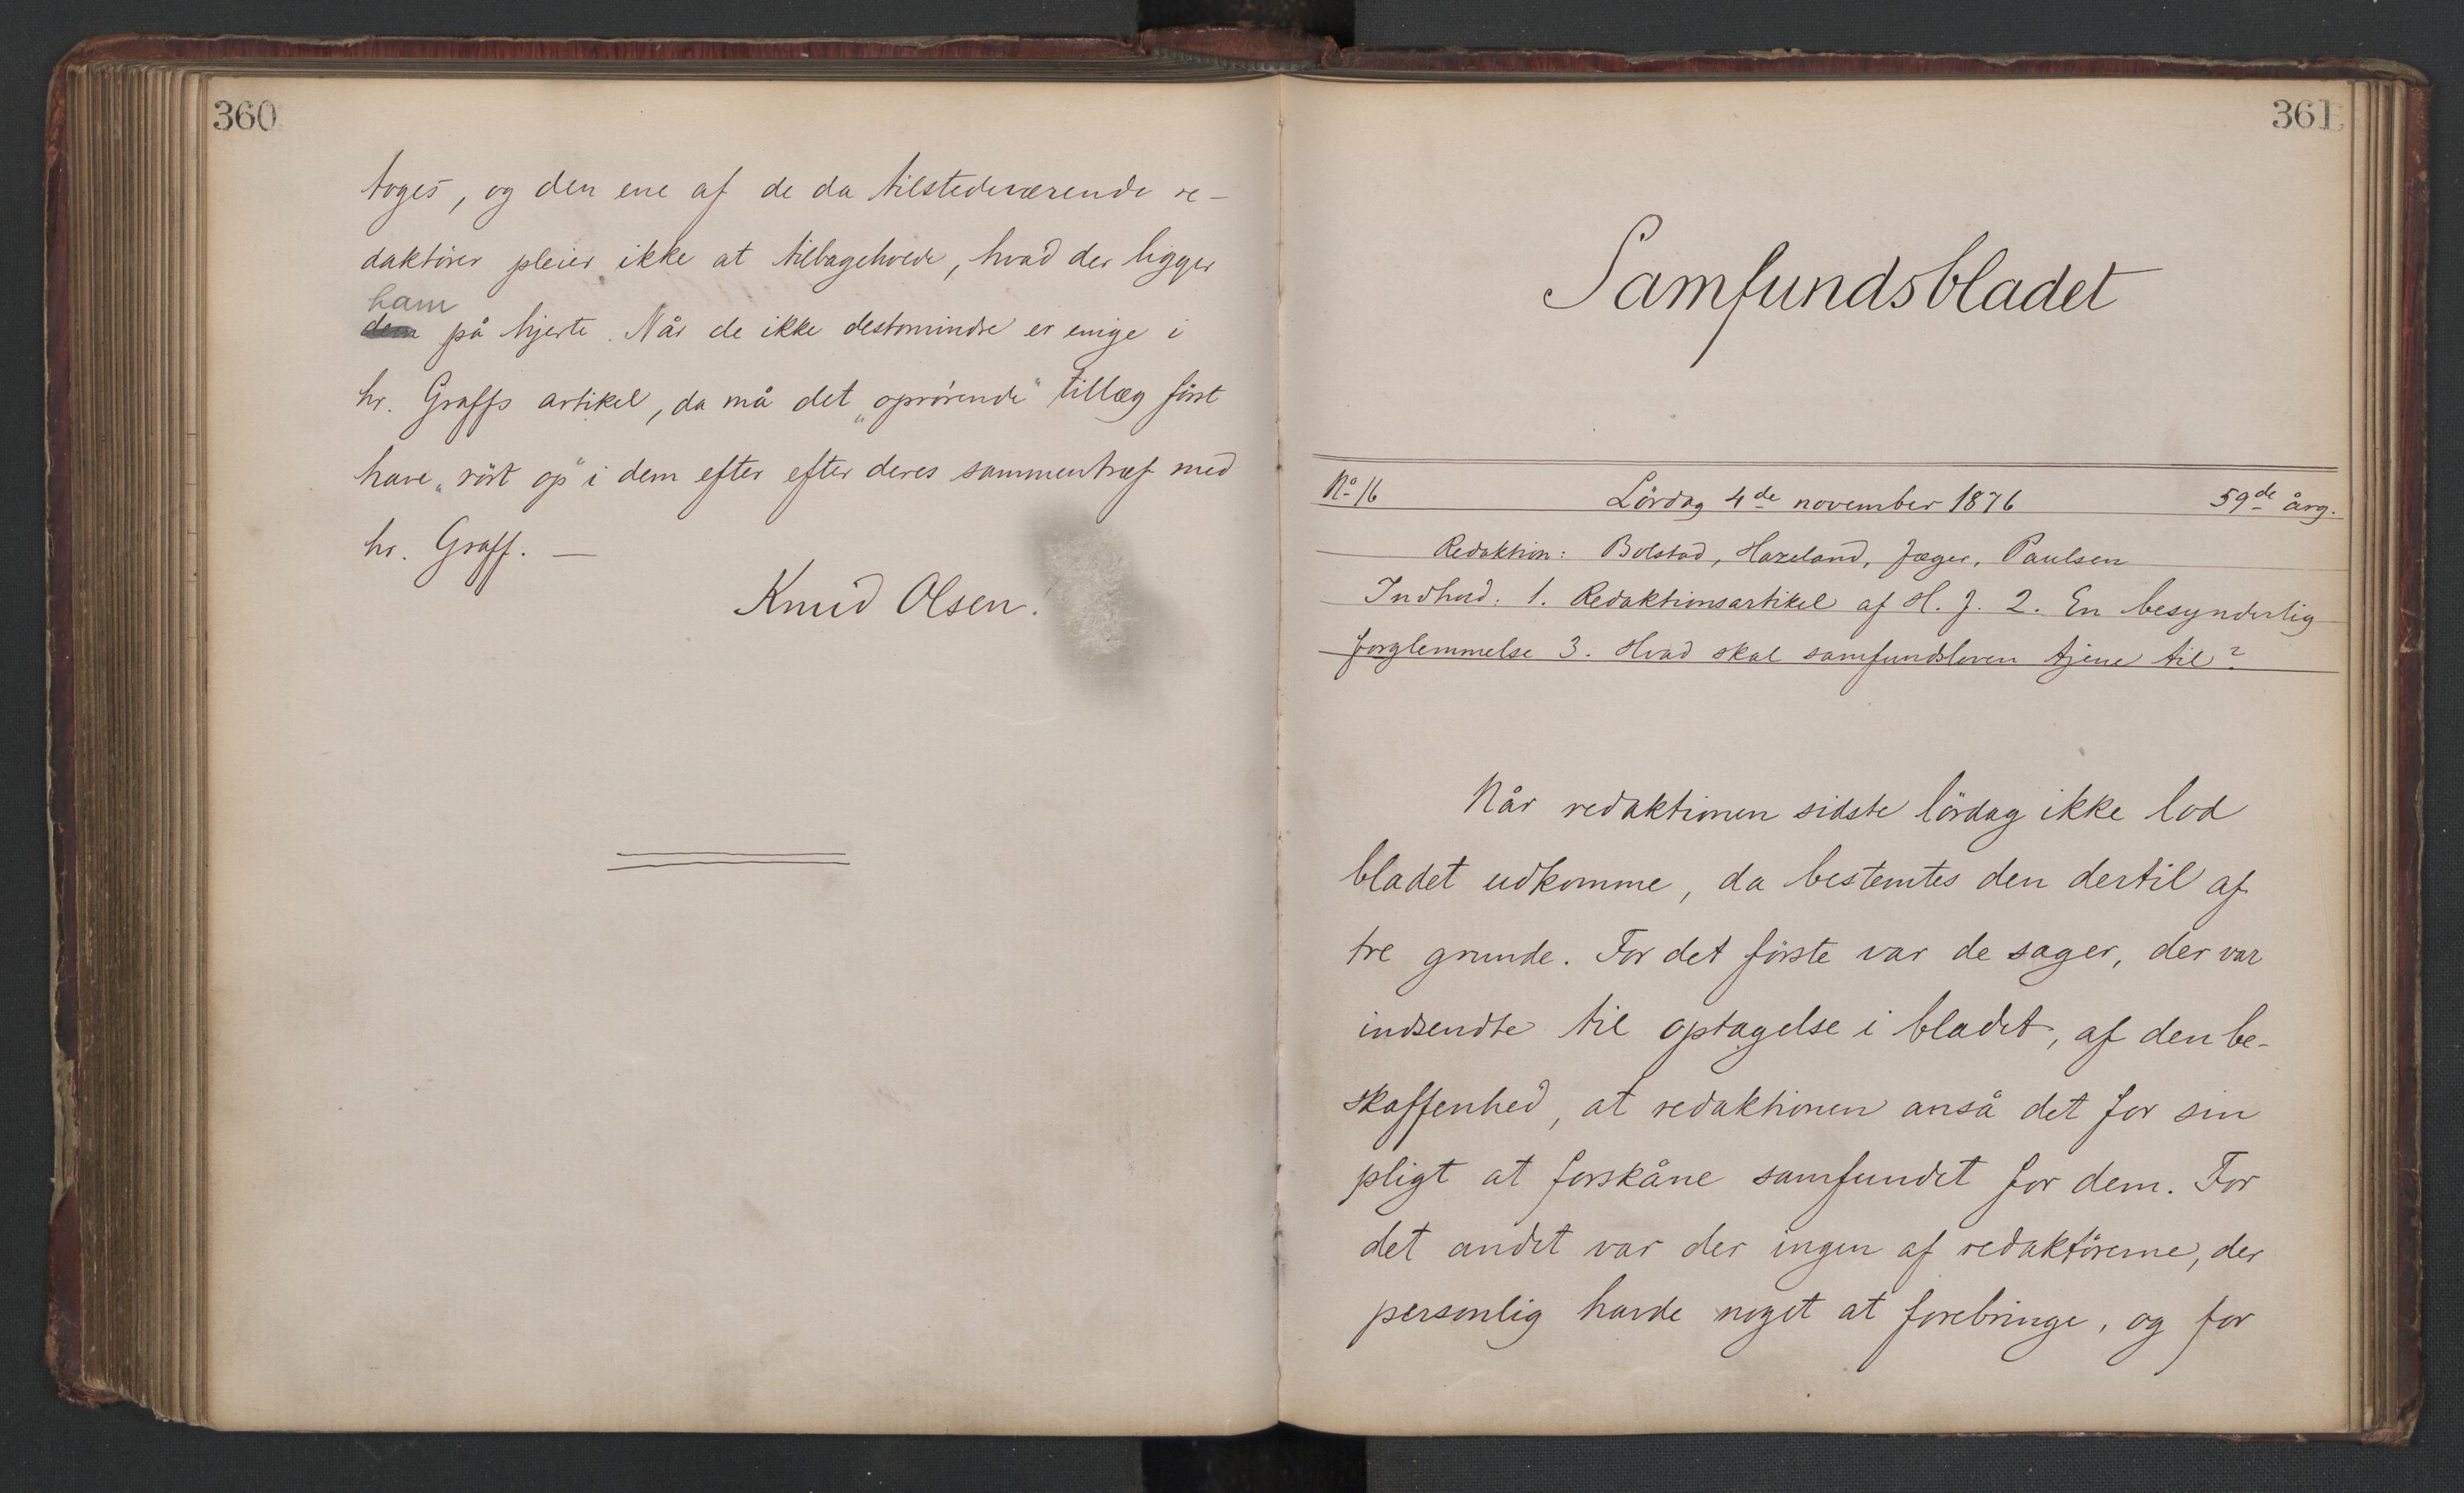 360
toges, og den ene af de da tilstedeværende re-
daktörer pleier ikke at tilbageholde, hvad der ligger
ham
dem på hjerte. Når de ikke destomindre er enige i
hr. Graffs artikel, da må det „oprörende“ tillæg först
have „rört op“ i dem efter efter deres sammentræf med
hr. Graff. —
Knud Olsen.
361
Samfundsbladet
No 16 Lördag 4de november 1876 59de årg.
Redaktion: Bolstad, Hazeland, Jæger, Paulsen
Indhold: 1. Redaktionsartikel af H. J. 2. En besynderlig
forglemmelse 3. Hvad skal samfundsloven tjene til?
Når redaktionen sidste lördag ikke lod
bladet udkomme, da bestemtes den dertil af
tre grunde. For det förste var de sager, der var
indsendte til optagelse i bladet, af den be-
skaffenhed, at redaktionen anså det for sin
pligt at forskåne samfundet for dem. For
det andet var der ingen af redaktörerne, der
personlig havde noget at forebringe, og for